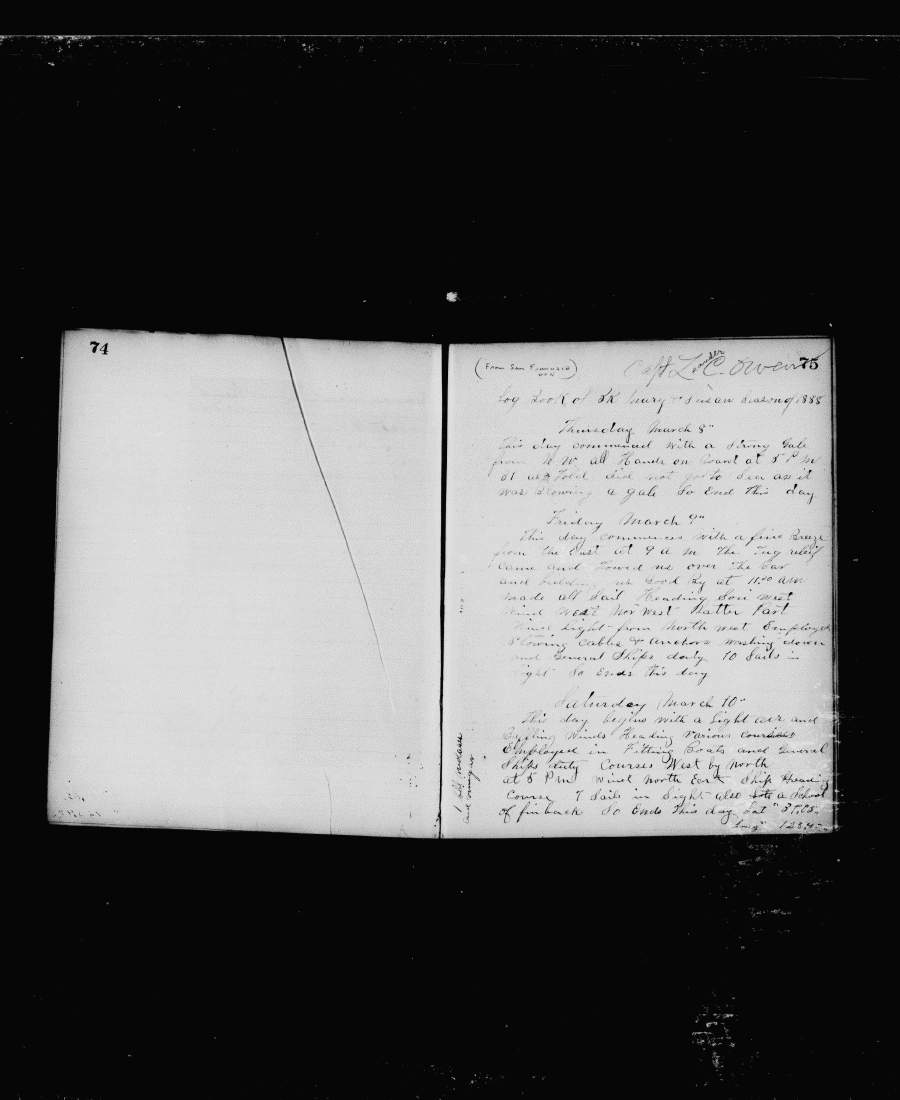 74
75
(From San Francisco
Capt Leander C. Owen
Log Book of Bk Mary & Susan Season of 1888
Thursday March 8"
This day commenced with a strong gale
from N W all Hands on board at 5 P M
did not go to Sea as it
was Blowing a gale So End this day
Friday March 9"
This day commences with a fine Breeze
from the East at 9 a m the Tug relief
Came and Towed us over the Bar
and us Good by at 11.30 am
Made all Sail Heading Sou West
Wind West Nor West Latter Part
Wind Light from North West Employed
Stowing Cables & anchors washing down
and General Ships duty 10 Sails in
sight So Ends this day
Saturday March 10"
This day begins with a Light air and
Baffling Winds Heading Various Courses
Employed in Fitting Boats and General
Ships duty Courses West by North
at 5 P m Wind North East Ship Heading
Course 7 Sails in Sight also a School
of finback So Ends this day Lat"
Long"